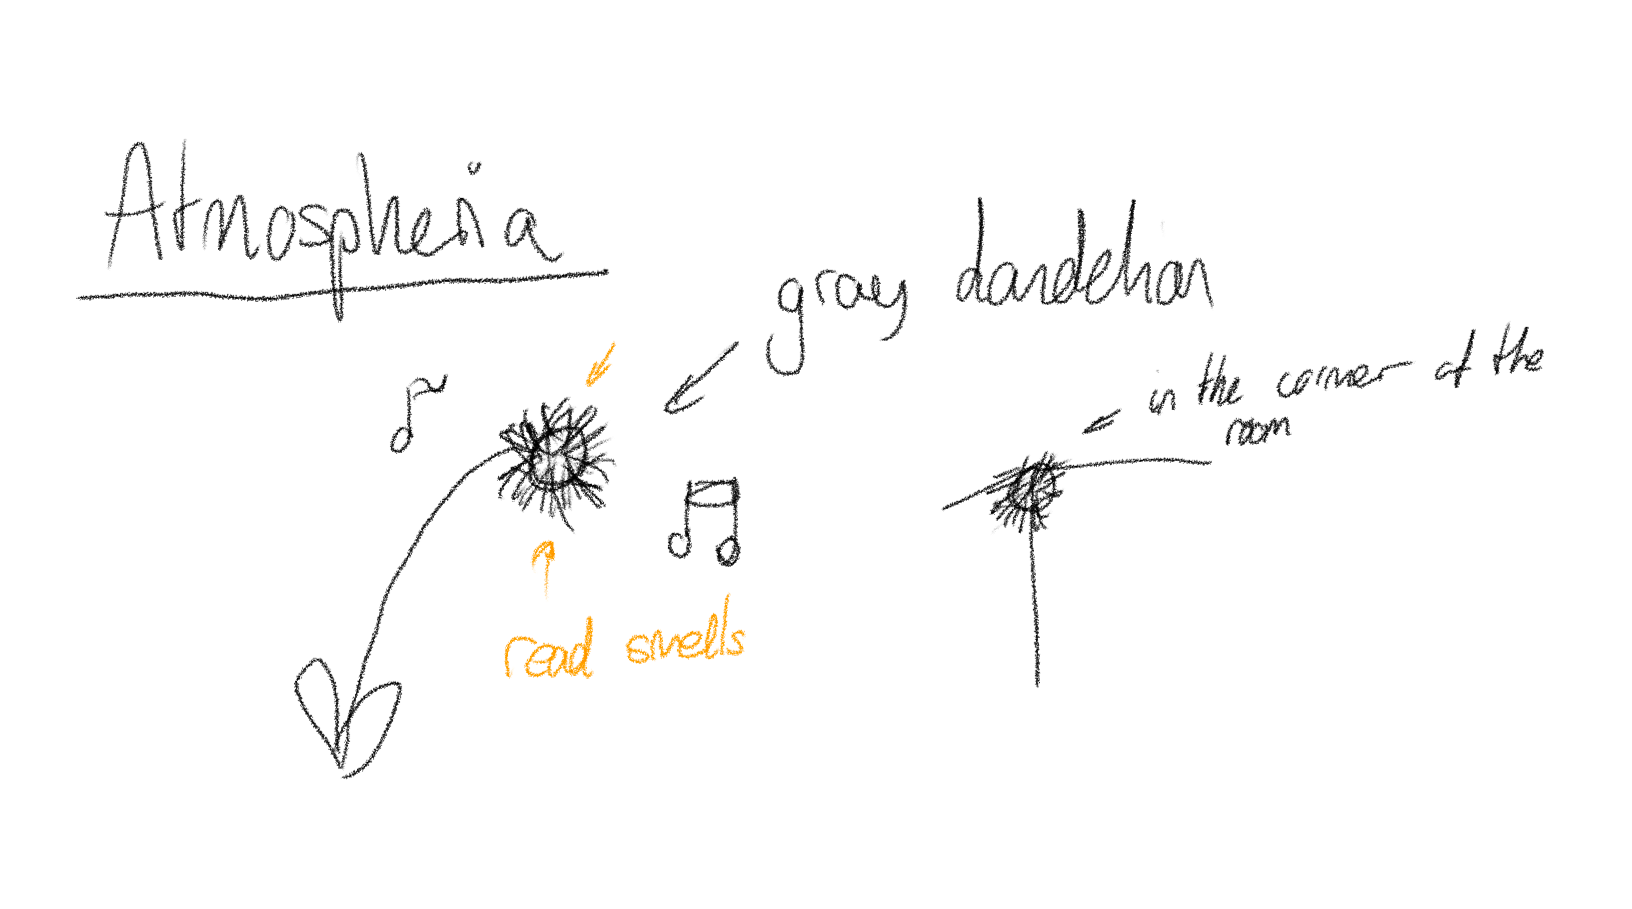 Atmospheria
gray dandelion
in the corner of the
room
read smells